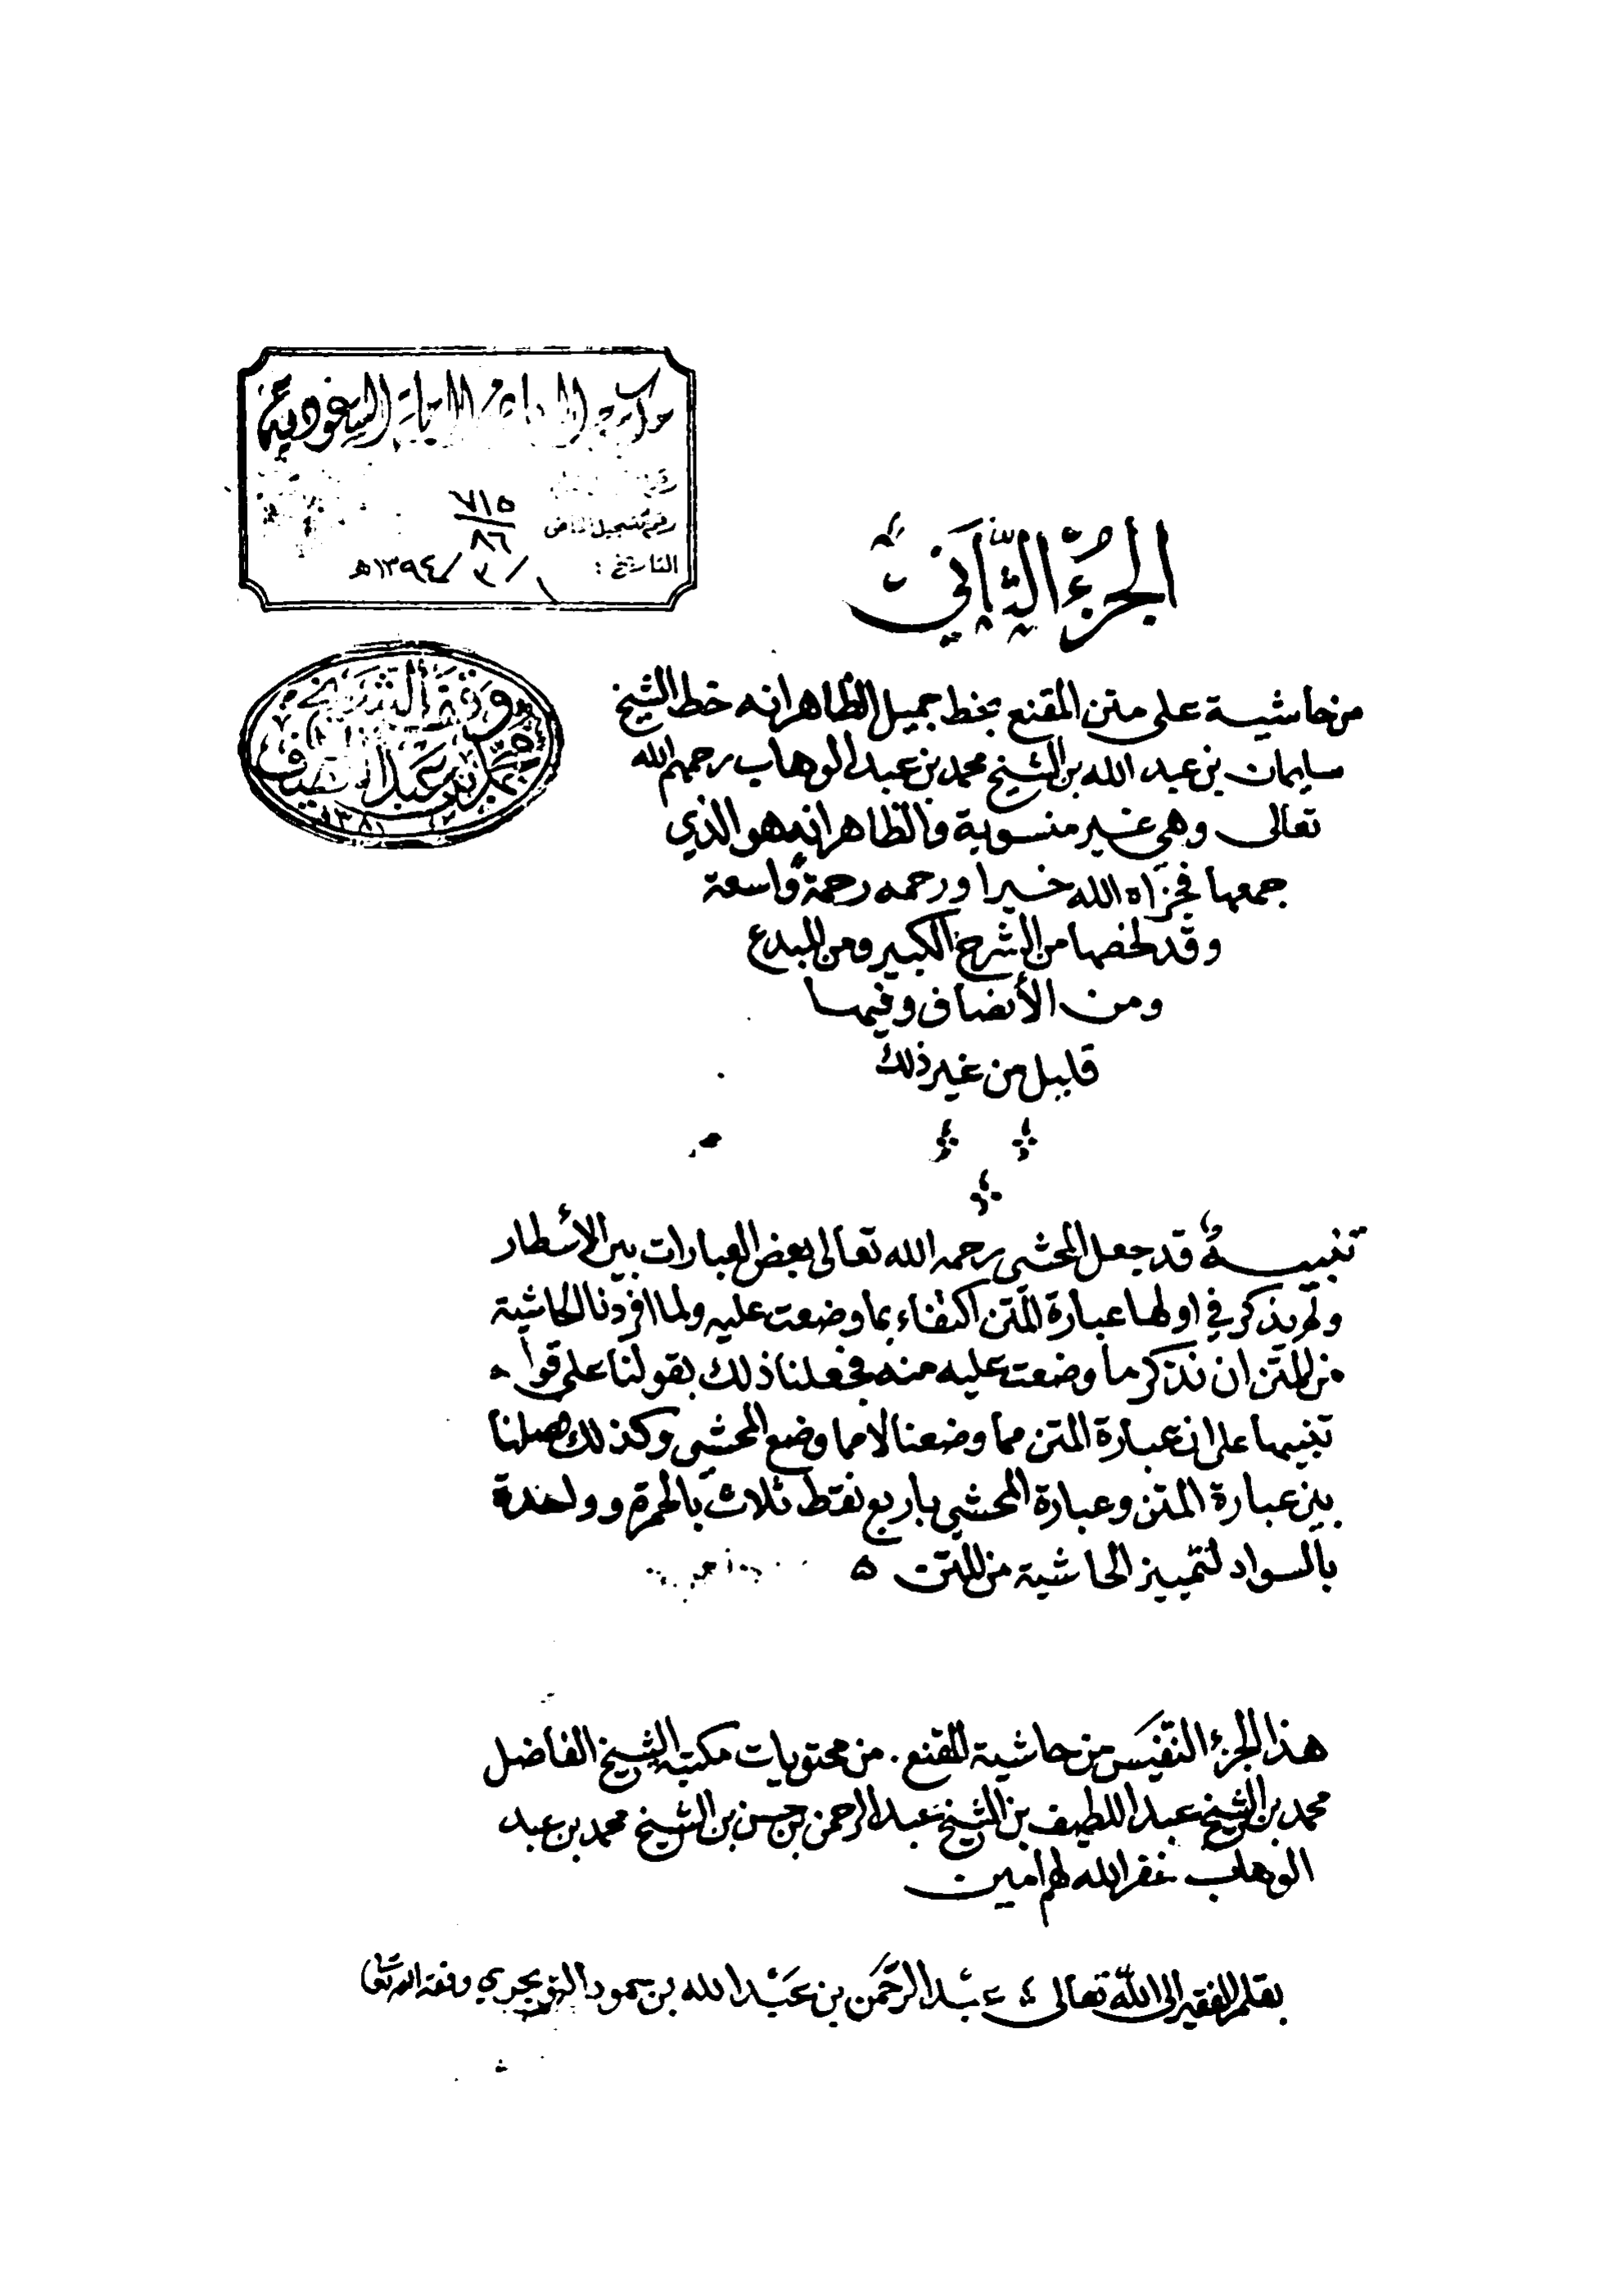 السعودية
٧١٥
رقم التسجيل الخاص
٨٦
التاريخ : ١ / ٣ / ١٣٩٤هـ
الجُزْءُ الثَّانِي
وقف الشيخ
محمد بن عبد اللطيف
١٣٨١
من حاشية على متن المقنع بخط جميل الظاهر انه خط الشيخ
سليمان بن عبد الله بن الشيخ محمد بن عبد الوهاب رحمهم الله
تعالى وهي غير منسوبة والظاهر انه هو الذي
جمعها فجزاه الله خيرا ورحمه رحمة واسعة
وقد لخصها من الشرح الكبير ومن المبدع
ومن الأنصاف وفيها
قليل من غير ذلك
تنبيه قد جعل المحشي رحمه الله تعالى بعض العبارات بين الأسطار
ولم يذكر في اولها عبارة المتن اكتفاء بما وضعت عليه ولما افردنا الحاشية
من المتن ان نذكر ما وضعت عليه منه فجعلنا ذلك بقولنا على قوله
تنبيها على ان عبارة المتن مما وضعنا لا مما وضع المحشي وكذلك فصلنا
بين عبارة المتن وعبارة المحشي باربع نقط ثلاث بالحمرة وواحدة
بالسواد لتمييز الحاشية من المتن ه
هذا الجزء النفيس من حاشية المقنع . من محتويات مكتبة الشيخ الفاضل
محمد بن الشيخ عبد اللطيف بن الشيخ عبد الرحمن بن حسن بن الشيخ محمد بن عبد
الوهاب غفر الله لهم امين
بقلم الفقير الى الله تعالى عبد الرحمن بن عبد الله بن حمود التويجري وفقه الله تعالى